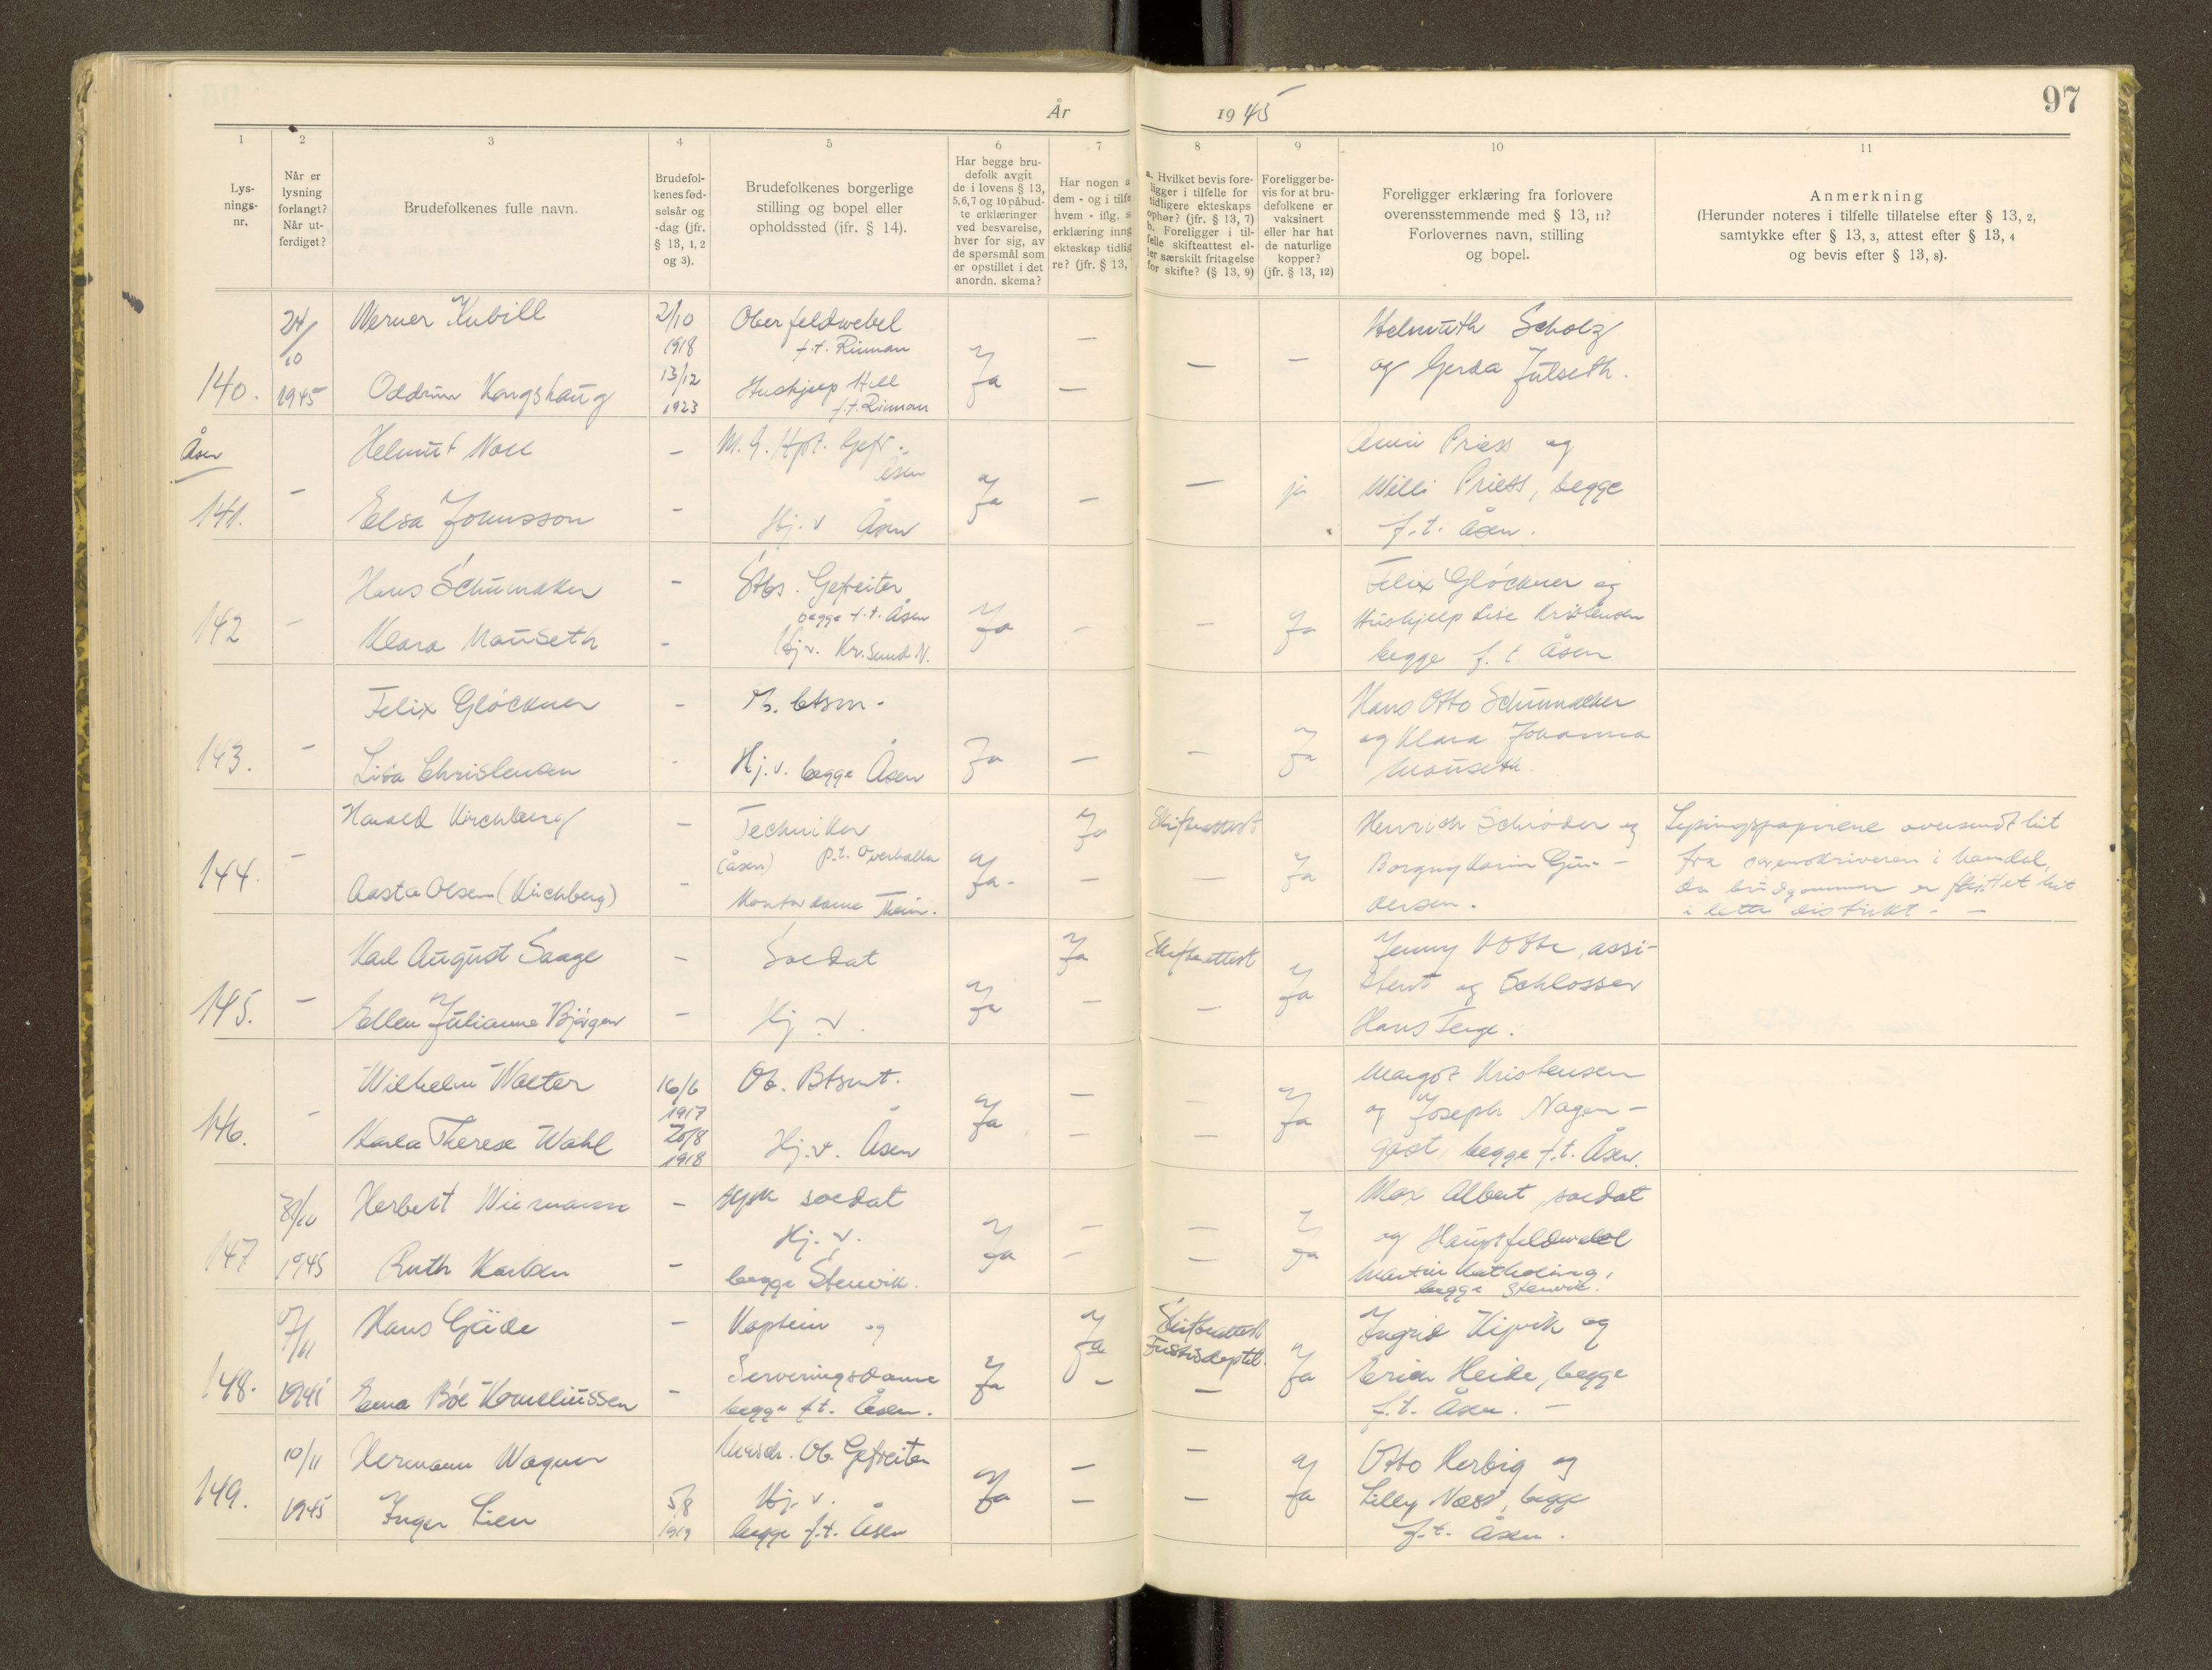 År 1945
97
1 2 3 4 5 6 7 8 9 10 11
Lys-
nings-
nr.
Når er
lysning
forlangt?
Når ut-
ferdiget?
Brudefolkenes fulle navn.
Brudefol-
kenes fød-
selsår og
-dag (jfr.
§ 13, 1, 2
og 3).
Brudefolkenes borgerlige
stilling og bopel eller
opholdssted (jfr. § 14).
Har begge bru-
defolk avgit
de i lovens § 13,
5, 6, 7 og 10 påbud-
te erklæringer
ved besvarelse,
hver for sig, av
de spørsmål som
er opstillet i det
anordn. skema?
Har nogen a
dem - og i tilfe
hvem - iflg. s
erklæring inng
ekteskap tidlig
re? (jfr. § 13,
a. Hvilket bevis fore-
ligger i tilfelle for
tidligere ekteskaps
ophør? (jfr. § 13, 7)
b. Foreligger i til-
felle skifteattest el-
ler særskilt fritagelse
for skifte? (§ 13, 9)
Foreligger be-
vis for at bru-
defolkene er
vaksinert
eller har hat
de naturlige
kopper?
(jfr. § 13, 12)
Foreligger erklæring fra forlovere
overensstemmende med § 13, 11?
Forlovernes navn, stilling
og bopel.
Anmerkning
(Herunder noteres i tilfelle tillatelse efter § 13, 2,
samtykke efter § 13, 3, attest efter § 13, 4
og bevis efter § 13, 8).
140.
24/10
1945
Werner Kubill
Oddrun Kongshaug
2/10
1918
13/12
1923
Oberfeldwebel
f.t. Rinnan
Hushjelp Hell
f.t. Rinnan
Ja
—
—
—
—
Helmuth Scholz
og Gerda Julseth.
Åsen
141.
—
Helmut Noll
Elsa Johnsson
—
—
M. G. Hpt. Gefr.
Åsen
Hj. v Åsen
Ja
—
—
ja
Anni Priess og
Willi Priess, begge
f.t. Åsen.
142
—
Hans Schumaker
Klara Mauseth
—
—
Stbs. Gefreiter
begge f.t. Åsen
Hj.v. Kr.Sund N.
Ja
—
—
Ja
Felix Glöckner og
Hushjelp Lise Kristensen
begge f.t. Åsen
143.
—
Felix Glöckner
Lisa Christensen
—
—
Btsm.
Hj.v. begge Åsen
Ja
—
—
Ja
Hans Otto Schumacker
og Klara Johanna
Mauseth.
144.
—
Harald Kirchberg
Aasta Olsen (Kirchberg)
—
—
Techniker
(Åsen) p.t. Overhalla
Kontordame Thein.
Ja.
Ja
—
Skifteattest
—
Ja
Henrich Schröder og
Borgny Karin Gun-
dersen.
Lysingspapirene oversendt hit
fra sorenskriveren i Namdal,
da brudgommen er flyttet hit
i dette distrikt. —
145.
—
Karl August Saage
Ellen Julianne Bjørgen
—
—
Soldat
Hj. v.
Ja
Ja
—
Skifteattest
—
Ja
Jenny Votte, assi-
stent og Schlosser
Hans Terge.
146.
—
Wilhelm Walter
Karla Therese Wahl
16/6
1917
20/8
1918
Ob. Btsmt.
Hj.v. Åsen
Ja
—
—
—
—
Ja
Margot Kristensen
og Joseph Nagen-
gast, begge f.t. Åsen.
147
31/10
1945
Herbert Wiemann
Ruth Karlsen
—
—
tysk soldat
Hj. v.
begge Stenvik.
Ja
—
—
—
—
Ja
Max Albert, soldat
og Hauptfeldwebel
Martin Katholing,
begge Stenvik.
148.
7/11
1945
Hans Gäde
Erna Böe Korneliussen
—
—
Kaptein og
Serveringsdame
begge f.t. Åsen.
Ja
Ja
—
Skifteattest
—
Ja
Ingrid Kipvik og
Erich Heide, begge
f.t. Åsen. —
149.
10/11
1945
Hermann Wagner
Inger Lien
5/8
1919
Masch. Ob. Gefreiter
Hj. v.
begge f.t. Åsen
Ja
—
—
—
—
Ja
Otto Herbig og
Lilly Næss, begge
f.t. Åsen.